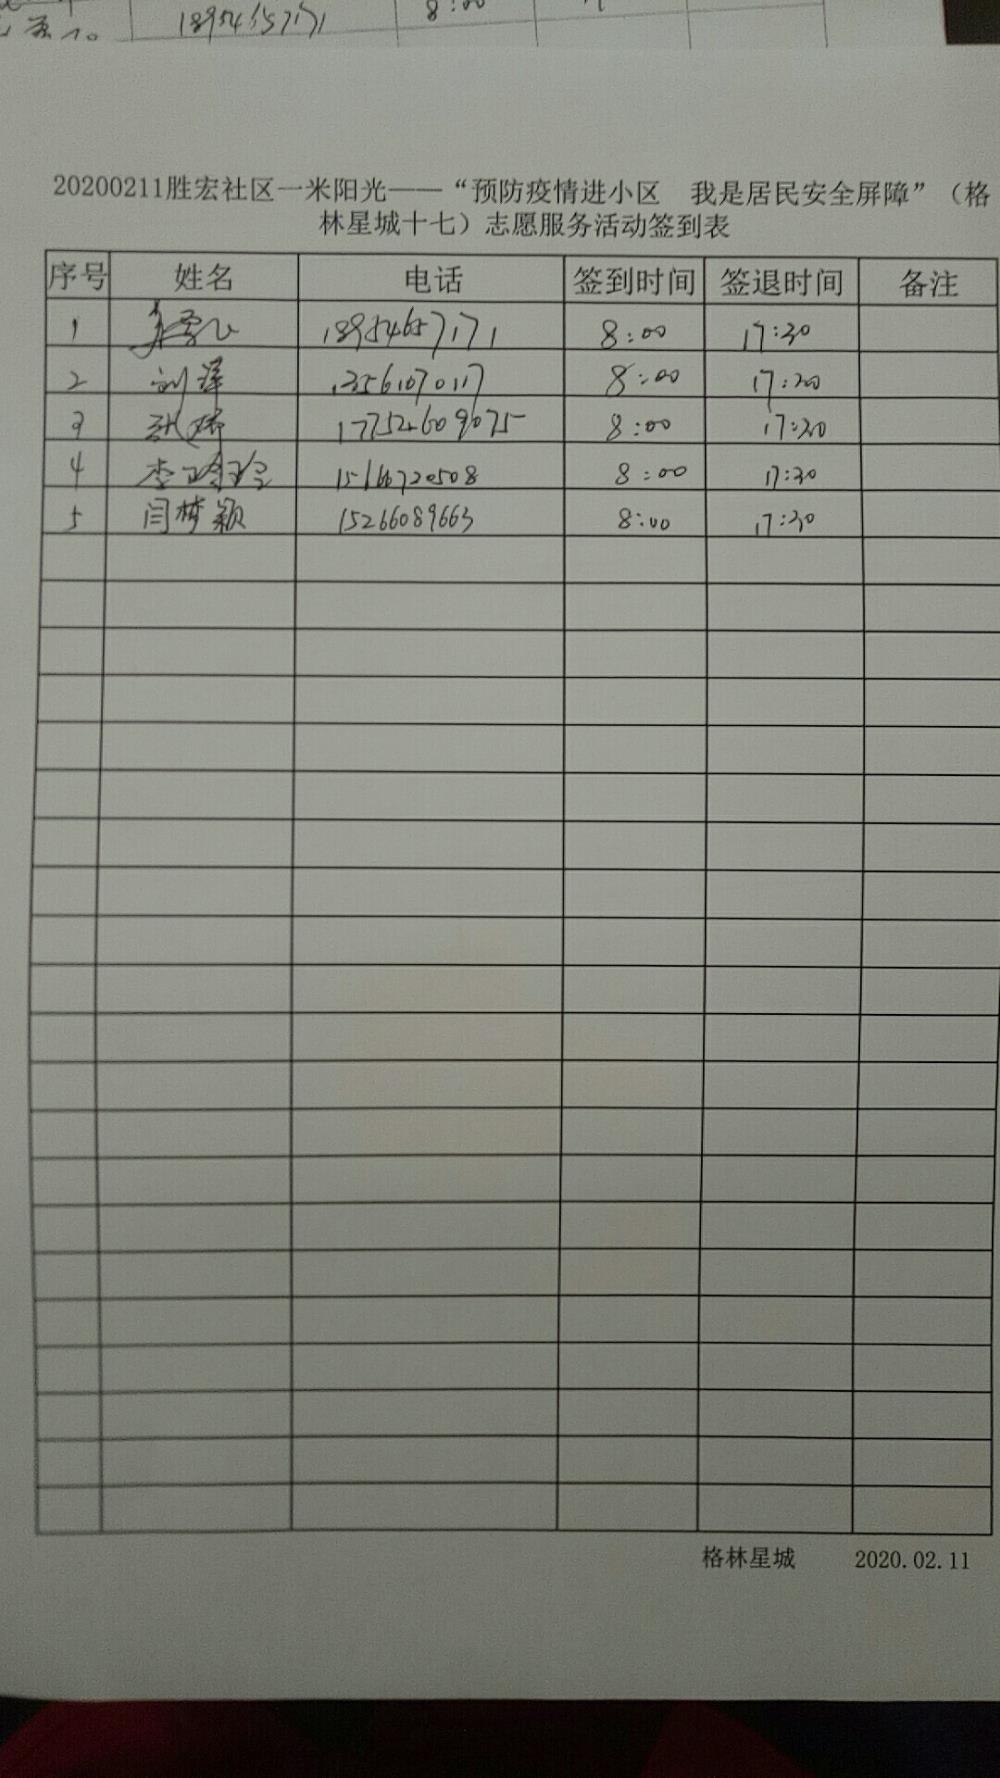 18954657171 8:00
20200211胜宏社区一米阳光——“预防疫情进小区 我是居民安全屏障”（格
林星城十七）志愿服务活动签到表
序号 姓名 电话 签到时间 签退时间 备注
1 18954657171 8:00 17:30
2 刘泽 13561070117 8:00 17:30
3 张瑞 17752609075 8:00 17:30
4 李玲玲 15166720508 8:00 17:30
5 闫梦颖 15266089663 8:00 17:30
格林星城 2020.02.11